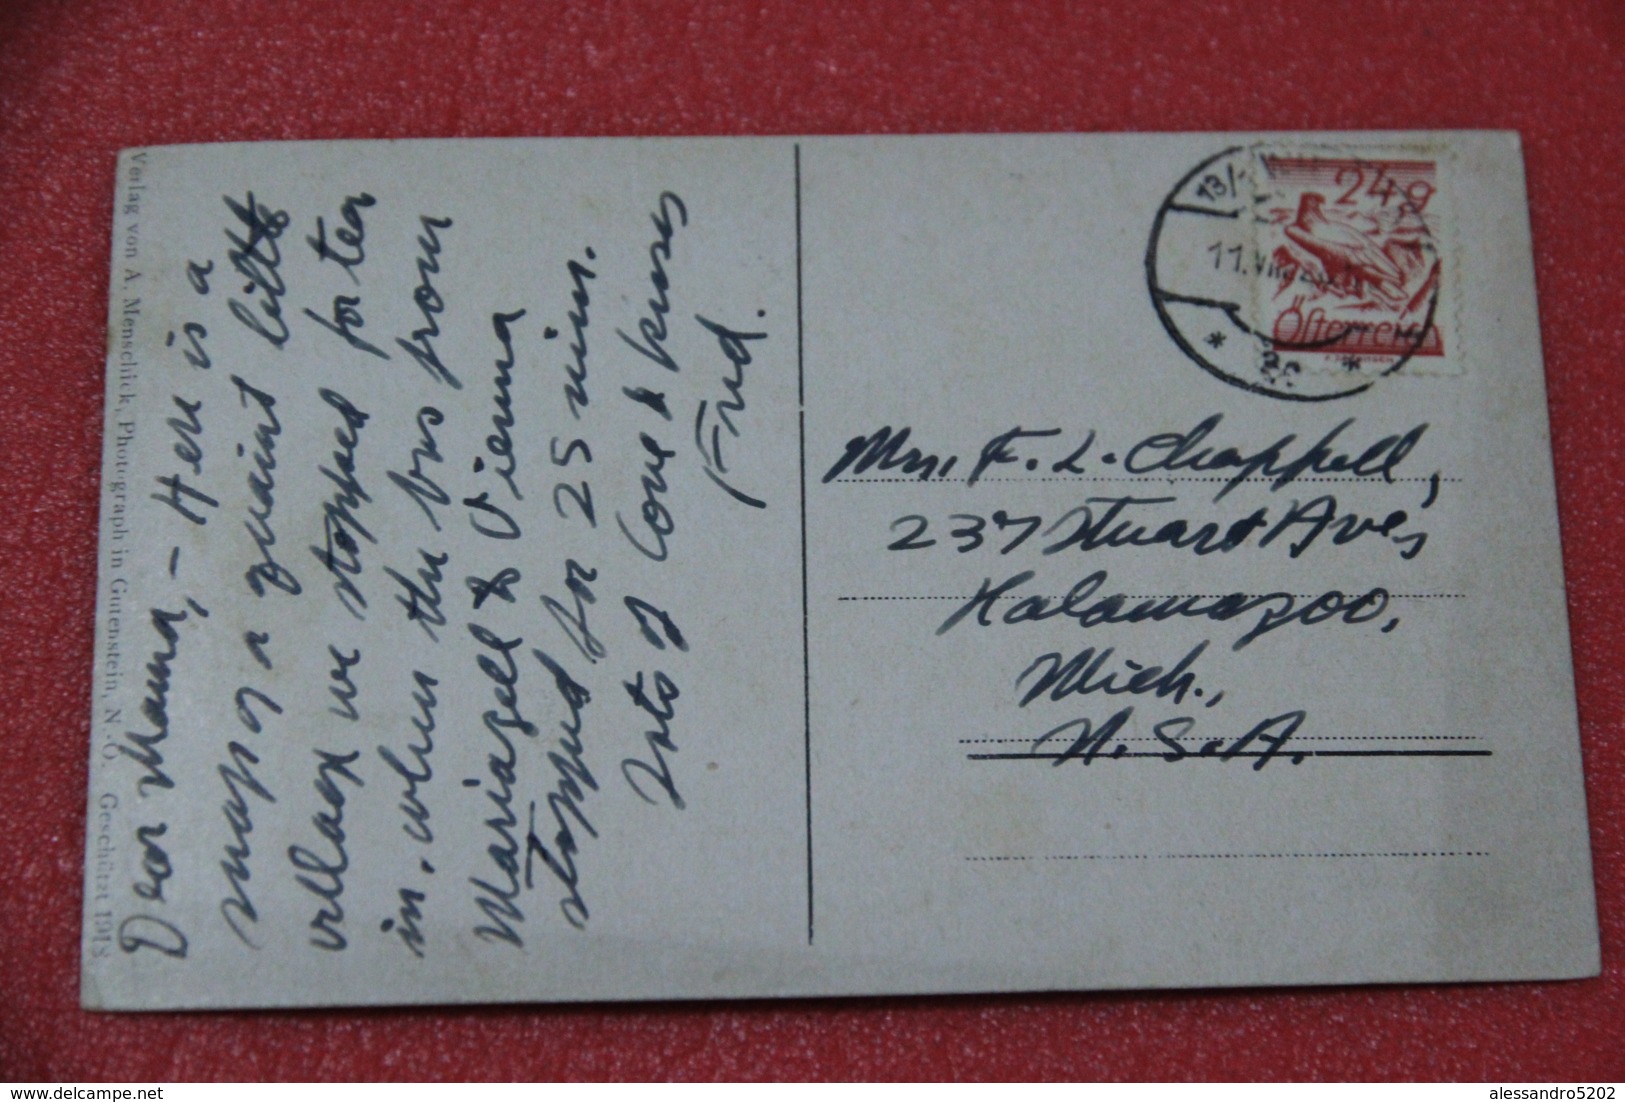 Verlag von A. Menschick, Photograph in Gutenstein, N.-Ö. Geschützt 1918
Dear Mama, – Here is a
map of a quaint little
village we stopped for tea
in. when the bus from
Mariazell to Vienna
stopped for 25 min.
Lots of Love & kisses
Fred.
24g
Österreich
13/
11.VIII
Mrs. F. L. Chappell,
237 Stuart Ave,
Kalamazoo,
Mich.,
U.S.A.
alessandro5202